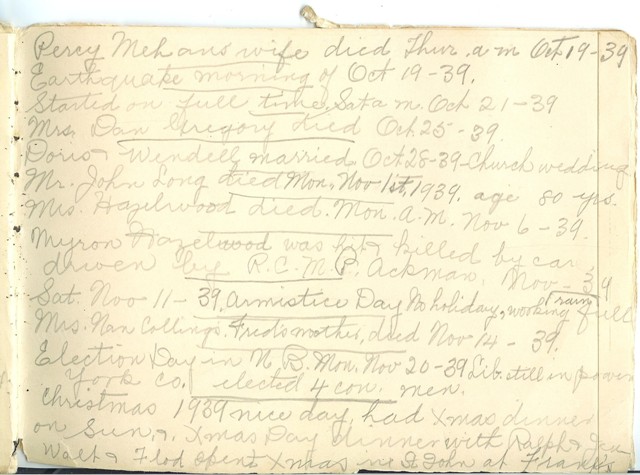 Percy Mehans wife died Thur. a m Oct 19-39
Earthquake morning of Oct 19-39.
Started on full time, Sat a m. Oct 21-39
Mrs. Dan Gregory died Oct 25-39
Doris & Wendell married Oct 28-39-Church wedding
Mr. John Long died Mon. Nov 1st, 1939. age 80 yrs.
Mrs. Hazelwood died. Mon. A.M. Nov 6-39.
Myron Hazelwood was hit & killed by car
driven by R.C.M.P. Ackman. Nov-39
Sat. Nov 11-39, Armistice Day No holiday, working full
Mrs. Nan Collings, Fred's mother, died Nov 14-39.
Election Day in N. B. Mon. Nov 20-39 Lib. still in power
York Co. elected 4 con. men.
Christmas 1939 nice day, had Xmas dinner
on Sun. &. Xmas Day dinner with Ralph &
Walt & Flo spent Xmas in St John at